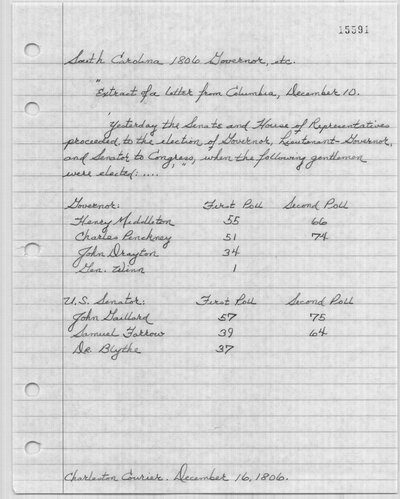 15591
South Carolina 1806 Governor, etc.
"Extract of a letter from Columbia, December 10.
'Yesterday the Senate and House of Representatives
proceeded to the election of Governor, Lieutenant-Governor,
and Senator to Congress,", when the following gentlemen
were elected: ....
Governor: First Poll Second Poll
Henry Middleton 55 66
Charles Pinckney 51 74
John Drayton 34
Gen. Winn 1
U.S. Senator: First Poll Second Poll
John Gaillard 57 75
Samuel Farrow 39 64
Dr. Blythe 37
Charleston Courier. December 16, 1806.